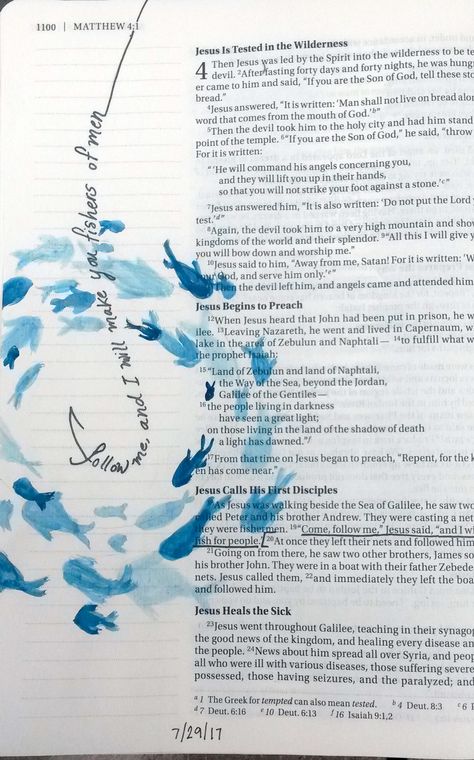 1100 | MATTHEW 4:1
Follow me, and I will make you fishers of men
Jesus Is Tested in the Wilderness
4 Then Jesus was led by the Spirit into the wilderness to be te
devil. ²After fasting forty days and forty nights, he was hung
er came to him and said, “If you are the Son of God, tell these sto
bread.”
⁴Jesus answered, “It is written: ‘Man shall not live on bread alon
word that comes from the mouth of God.’ᵇ”
⁵Then the devil took him to the holy city and had him stand
point of the temple. ⁶“If you are the Son of God,” he said, “throw
For it is written:
“‘He will command his angels concerning you,
and they will lift you up in their hands,
so that you will not strike your foot against a stone.’ᶜ”
⁷Jesus answered him, “It is also written: ‘Do not put the Lord
test.’ᵈ”
⁸Again, the devil took him to a very high mountain and show
kingdoms of the world and their splendor. ⁹“All this I will give y
you will bow down and worship me.”
¹⁰Jesus said to him, “Away from me, Satan! For it is written: ‘W
your God, and serve him only.’ᵉ”
Then the devil left him, and angels came and attended him
Jesus Begins to Preach
¹²When Jesus heard that John had been put in prison, he w
ilee. ¹³Leaving Nazareth, he went and lived in Capernaum, w
lake in the area of Zebulun and Naphtali— ¹⁴to fulfill what w
the prophet Isaiah:
¹⁵“Land of Zebulun and land of Naphtali,
the Way of the Sea, beyond the Jordan,
Galilee of the Gentiles—
¹⁶the people living in darkness
have seen a great light;
on those living in the land of the shadow of death
a light has dawned.”ᶠ
¹⁷From that time on Jesus began to preach, “Repent, for the k
en has come near.”
Jesus Calls His First Disciples
As Jesus was walking beside the Sea of Galilee, he saw two
called Peter and his brother Andrew. They were casting a net
they were fishermen. ¹⁹“Come, follow me,” Jesus said, “and I wi
fish for people.” ²⁰At once they left their nets and followed him
²¹Going on from there, he saw two other brothers, James so
his brother John. They were in a boat with their father Zebede
nets. Jesus called them, ²²and immediately they left the boa
and followed him.
Jesus Heals the Sick
²³Jesus went throughout Galilee, teaching in their synagog
the good news of the kingdom, and healing every disease an
the people. ²⁴News about him spread all over Syria, and peop
all who were ill with various diseases, those suffering severe
possessed, those having seizures, and the paralyzed; and
ᵃ1 The Greek for tempted can also mean tested. ᵇ4 Deut. 8:3 ᶜ6
ᵈ7 Deut. 6:16 ᵉ10 Deut. 6:13 ᶠ16 Isaiah 9:1,2
7/29/17